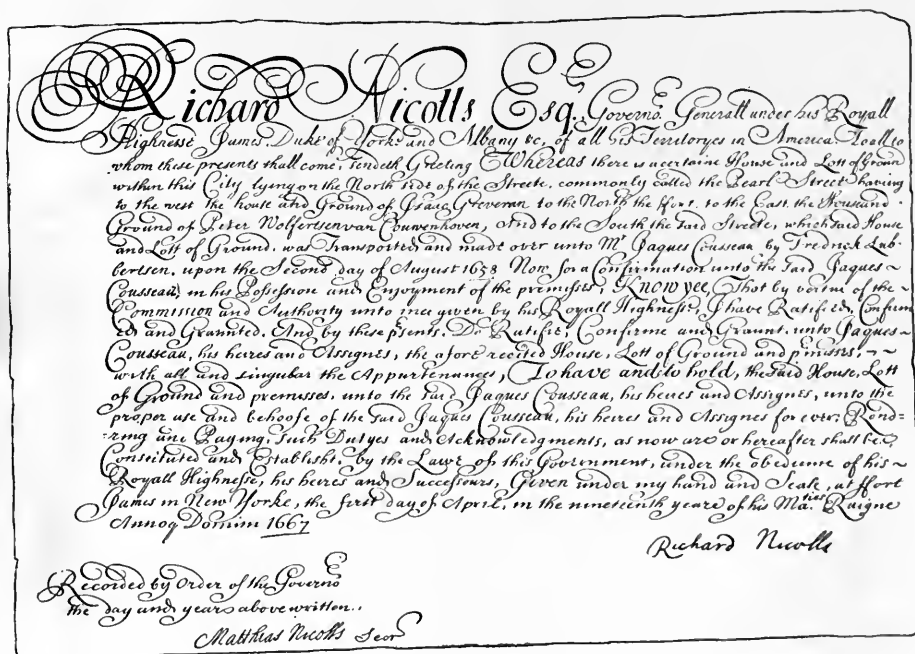 Richard Nicolls Esq. Governo.r Generall under his Royall
Highnesse James. Duke of Yorke and Albany &c. of all his Territoryes in America. To all to
whom these presents shall come, sendeth Greeting Whereas there is a certaine House and Lott of Groun
within this City, lying on the North side of the Streete, commonly called the Pearl Street having
to the west the house and Ground of Isaac Greveran to the North the ffort, to the East, the House and
Ground of Peter Wolfertsen van Couwenhoven, And to the South the said Streete, which said House
and Lott of Ground, was Transported and made over unto Mr. Jaques Cousseau by Fredrick Lub-
bertsen. upon the Second day of August 1658 Now for a Confirmation unto the said Jaques~
Cousseau, in his Possession and Enjoyment of the premisses; Know yee, That by vertue of the~
Commission and Authority unto mee given by his Royall Highnesse, I have Ratified, Confirm
ed and Graunted. And by these p'sents. Do Ratifie, Confirme and Graunt. unto Jaques~
Cousseau, his heires and Assignes, the afore recited House, Lott of Ground and p'misses, ~ ~
with all and singular the Appurtenances, To have and to hold, the said House, Lott
of Ground and premisses, unto the said Jaques Cousseau, his heires and Assignes, unto the
proper use and behoofe of the said Jaques Cousseau, his heires and Assignes for ever, Rend=
=ring and Paying, such Dutyes and Acknowledgments, as now are or hereafter shall bee
Constituted and Establisht, by the Lawes of this Government, under the obedience of his~
Royall Highnesse, his heires and Successours, Given under my hand and Seale, at ffort
James in New Yorke, the first day of April, in the nineteenth yeare of his Ma.ties Raigne
Annoq Domini 1667
Richard Nicolls
Recorded by Order of the Governo.r
the day and yeare above written..
Matthias Nicolls Secr